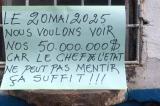 LE 20 MAI 2025
NOUS VOULONS VOIR
NOS 50.000.000$
CAR LE CHEF DE L'ETAT
NE PEUT PAS MENTIR
ÇA SUFFIT!!!